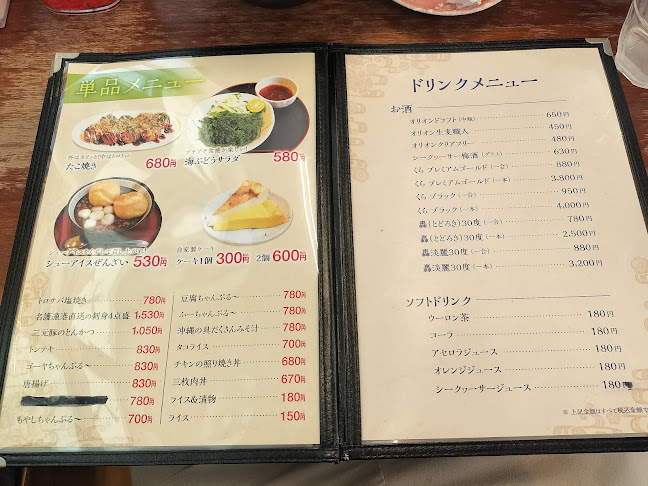 単品メニュー
外はカリッと中はトロトロ
たこ焼き 680円
プチプチ食感が楽しい!!
海ぶどうサラダ 580円
シューアイスぜんざい 530円
自家製ケーキ
ケーキ1個 300円 2個 600円
トロサバ塩焼き 780円
名護漁港直送の刺身4点盛 1,530円
三元豚のとんかつ 1,050円
トンテキ 830円
ゴーヤちゃんぷる〜 830円
唐揚げ 830円
780円
もやしちゃんぷる〜 700円
豆腐ちゃんぷる〜 780円
ふーちゃんぷる〜 780円
沖縄の具だくさんみそ汁 780円
タコライス 700円
チキンの照り焼き丼 680円
三枚肉丼 670円
ライス&漬物 180円
ライス 150円
ドリンクメニュー
お酒
オリオンドラフト(中瓶) 650円
オリオン生麦職人 450円
オリオンクリアフリー 480円
シークヮーサー梅酒(グラス) 630円
くら プレミアムゴールド(一合) 880円
くら プレミアムゴールド(一本) 3,800円
くら ブラック(一合) 950円
くら ブラック(一本) 4,000円
轟(とどろき)30度(一合) 780円
轟(とどろき)30度(一本) 2,500円
轟淡麗30度(一合) 880円
轟淡麗30度(一本) 3,200円
ソフトドリンク
ウーロン茶 180円
コーラ 180円
アセロラジュース 180円
オレンジジュース 180円
シークヮーサージュース 180円
※上記金額はすべて税込金額で